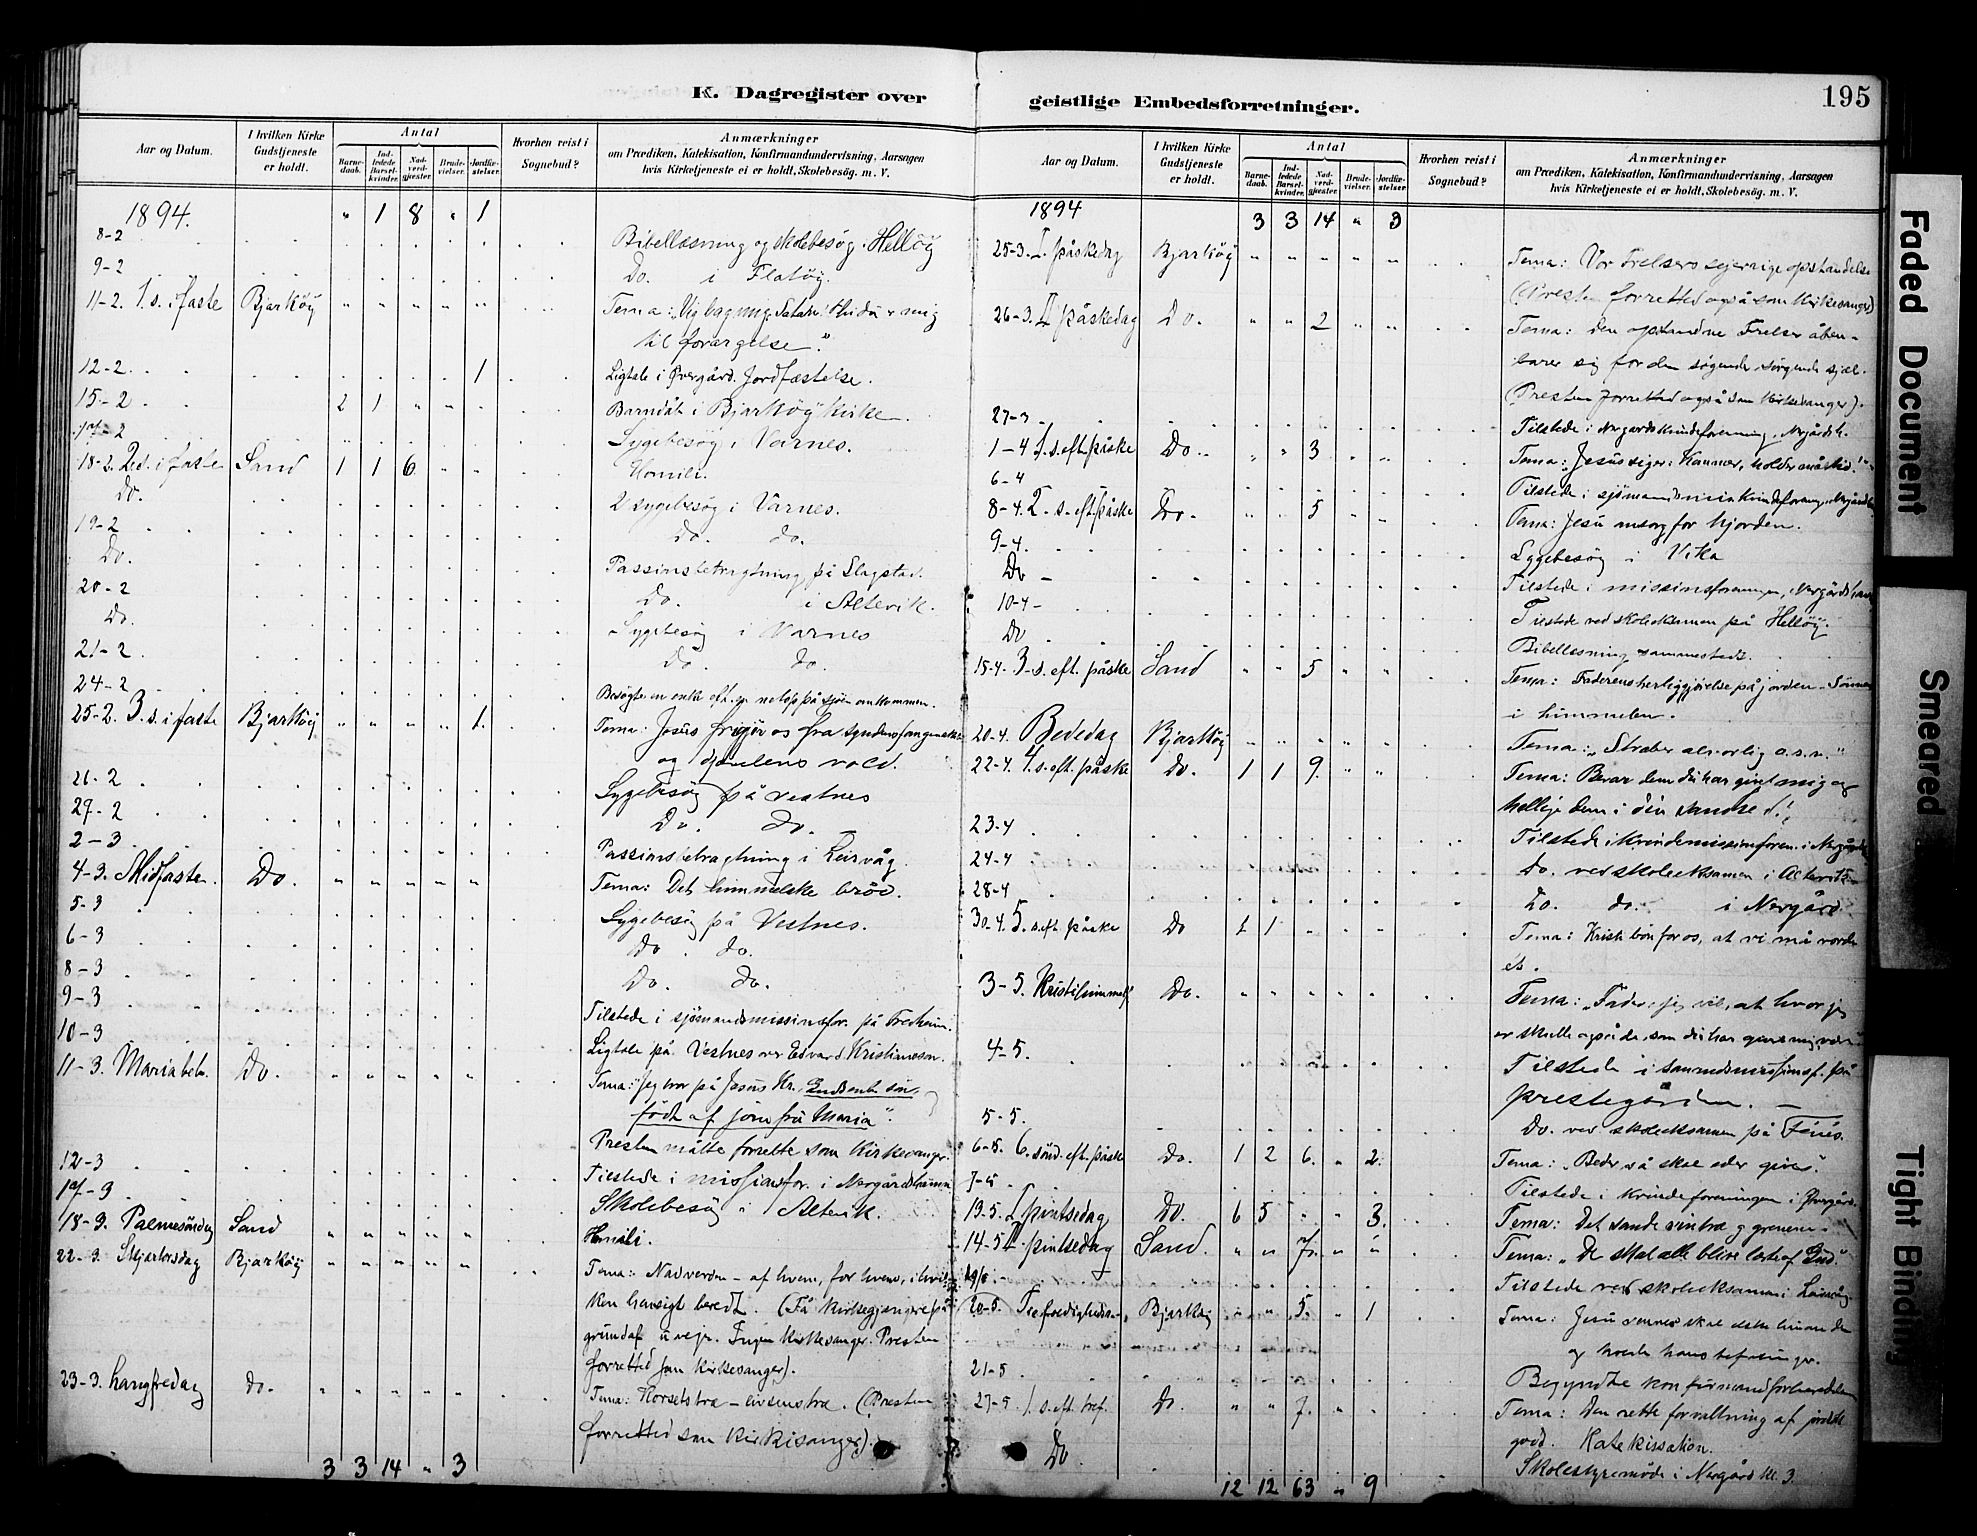 K. Dagregister over
Aar og Datum.
I hvilken Kirke Gudstjeneste er holdt.
Antal
Barne-daab.
Ind-ledede Barsel-kvinder.
Nad-verd-gjæster.
Brude-vielser.
Jordfæ-stelser.
Hvorhen reist i Sognebud?
Anmærkninger
om Prædiken, Katekisation, Konfirmandundervisning, Aarsagen
hvis Kirketjeneste ei er holdt, Skolebesög. m. V.
1894. " 1 8 " 1
8-2 Bibellæsning og skolebesøg i Helløy
9-2 Do. i Flatøy.
11-2. 1. s. i faste Bjarkøy " " " " " Tema: „Vig bag mig Satan!
til forargelse."
12-2. 1 Ligtale i Øvergård. Jordfæstelse.
15-2 2 1 " " Barnedåb i Bjarkøy kirke.
17-2 Sygebesøg i Varnes.
18-2. 2. s. i faste Sand 1 1 6 " " Homili.
Do. 2 sygebesøg i Varnes.
19-2 Do. do.
Do. Passionsbetragtning på Slagstad.
20-2 Do. i Altevik.
Do. Sygebesøg i Varnes
21-2 Do. do.
24-2 Besøgte en enke
25-2. 3. s. i faste Bjarkøy " " " " 1. Tema: Jesus frigjør os fra syndens fangenskab
og djævlens vold.
26-2 Sygebesøg på Vestnes
27-2 Do. do.
2-3 Passionsbetragtning i Leirvåg.
4-3. Midfaste. Do. " " " " " Tema: Det himmelske brød.
5-3 Sygebesøg på Vestnes.
6-3 Do. do.
8-3 Do. do.
9-3 Tilstede i sjømandsmissionsfor. på Fredheim.
10-3 Ligtale på Vestnes over Edvard Kristiansen.
11-3. Mariæ beb. Do. " " " " " Tema: "Jeg tror på Jesus Kr., Guds enb. søn,
født af jomfru Maria".
Presten måtte forrette som kirkesanger.
12-3 Tilstede i missionsfor. i Nergårdshavn
17-3 Skolebesøg i Altevik.
18-3. Palmesøndag Sand " " " " " Homili.
22-3. Skjærtorsdag Bjarkøy " " " " " Tema: Nadverden – af hvem, for hvem, i hvil-
ken hensigt beredt. (Få kirkegjængere på
grund af uvejr. Ingen kirkesanger. Presten
forretted som kirkesanger).
23-3. Langfredag do. " " " " " Tema: Korsets træ – livsens træ. (Presten
forretted som kirkesanger).
3 3 14 " 3
geistlige Embedsforretninger.
195
Aar og Datum.
I hvilken Kirke Gudstjeneste er holdt.
Antal
Barne-daab.
Ind-ledede Barsel-kvinder.
Nad-verd-gjæster.
Brude-vielser.
Jordfæ-stelser.
Hvorhen reist i Sognebud?
Anmærkninger
om Prædiken, Katekisation, Konfirmandundervisning, Aarsagen
hvis Kirketjeneste ei er holdt, Skolebesög. m. V.
1894 3 3 14 " 3
25-3. I. påskedag Bjarkøy " " " " " Tema: Vor Frelsers sejerrige opstandelse
(Presten forretted også som kirkesanger)
26-3. II påskedag Do. " " 2 " " Tema: den opstandne Frelser åben-
barer sig for den søgende, sørgende sjæl.
(Presten forretted også som kirkesanger).
27-3 Tilstede i Nergårds kvindeforening, Nergårdsh.
1-4 1. s. eft. påske Do. " " 3 " " Tema: Jesus siger:
6-4 Tilstede i sjømandsmis. kvindeforening, Nergårdsh.
8-4. 2. s. eft. påske Do. " " 5 " " Tema: Jesu omsorg for hjorden.
9-4. Sygebesøg i Vika
Do - Tilstede i missionsforeningen, Nergårdshavn
10-4 - Tilstede ved skoleeksamen på Helløy.
Do Bibellæsning sammesteds.
15-4. 3. s. eft. påske Sand " " 5 " " Tema: Faderens herliggjørelse på jorden – Sønnens
i himmelen.
20-4. Bededag Bjarkøy " " " " " Tema: „Stræber alvorlig o.s.v."
22-4. 4. s. eft. påske Do. 1 1 9. " " Tema: Bevar dem du har givet mig og
hellige dem i din sandhed!
23-4 Tilstede i kvindemissionsforen. i Nergårdsh.
24-4 Do. ved skoleeksamen i Altevik
28-4 Do. do. i Nergård
30-4. 5. s. eft. påske Do 1 1 " " " Tema: Kristi bøn for os, at vi må vorde
et.
3-5. Kristi himmelf. Do. " " " " " Tema: „Fader, jeg vil, at hvor jeg
er skulle også de, som du har givet mig, være
4-5. Tilstede i sømandsmissionsf. på
prestegården. –
5-5. Do. ved skoleeksamen på
6-5. 6. sønd. eft. påske Do. 1 2 6. " 2. Tema: „Beder, så skal eder gives".
7-5 Tilstede i kvindeforeningen i Øvergård.
13-5. I pintsedag Do. 6 5 " " 3. Tema: Det sande vintræ og grenene.
14-5 II. pintsedag Sand. " " 7. " " Tema: „De skal alle blive lærte af Gud."
19/5 - Tilstede ved skoleeksamen i Leirvåg
20-5. Trefoldigheds Bjarkøy " " 5. " 1 Tema: Jesu venner skal elske hinanden
og holde hans befalinger.
21-5 Begyndte konfirmandforberedelsen
27-5 1. s. eft. tref. Do. " " 7. " " Tema: Den rette forvaltning af jordisk
gods. Katekisation.
Do Skolestyremøde i Nergård kl. 3.
12 12 63 " 9
Faded Document
Smeared
Tight Binding